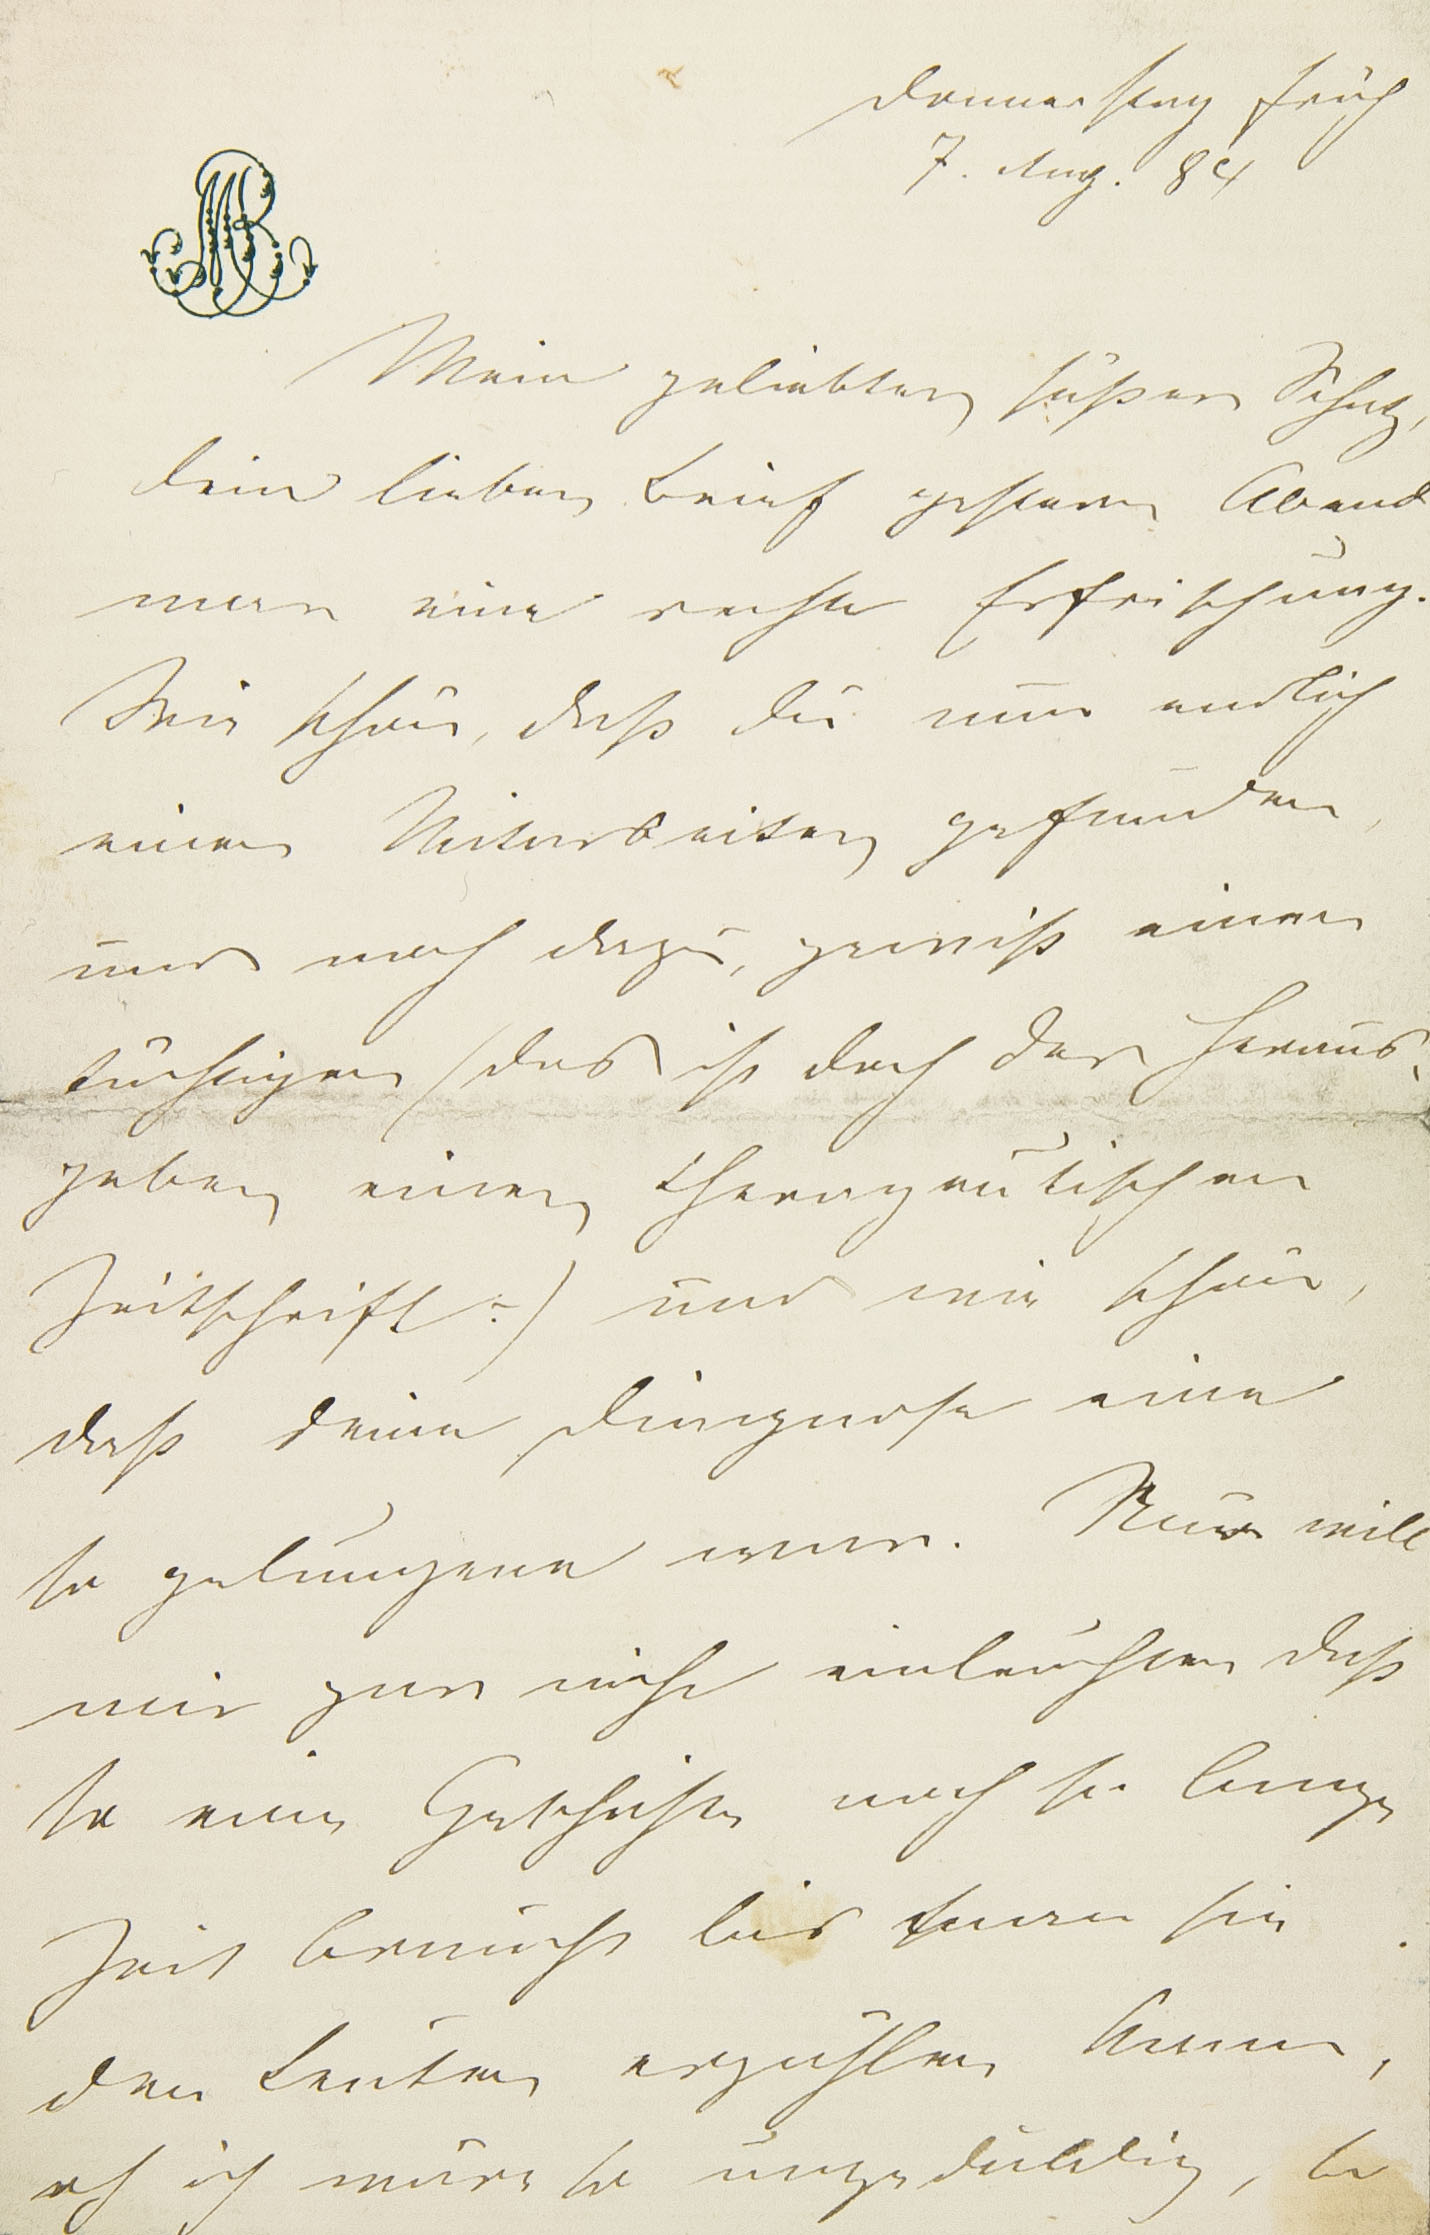 Donnerstag früh
7. Aug. 84
MB
Mein geliebter süßer Schatz,
Dein lieber Brief gestern Abend
war eine rechte Erfrischung.
Wie schön, daß Du nun endlich
einen Mitarbeiter gefunden,
und noch dazu, gewiß einen
tüchtigen (das ist doch der Heraus-
geber einer therapeutischen
Zeitschrift?) und wie schön,
daß Deine Diagnose eine
so gelungene war. Nur will
mir gar nicht einleuchten daß
so eine Geschichte noch so lange
Zeit braucht bis man sie
den Leuten erzählen kann,
ach ich wäre so ungeduldig, so